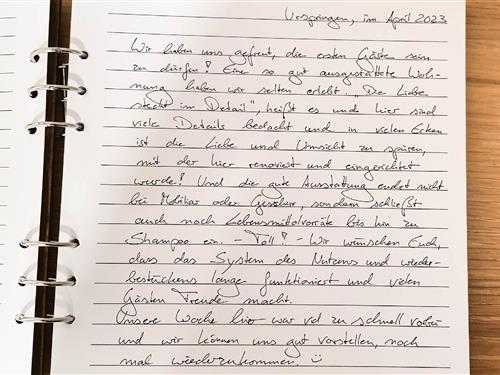 Urspringen, im April 2023
Wir haben uns gefreut, die ersten Gäste sein
zu dürfen! Eine so gut ausgestattete Woh-
nung haben wir selten erlebt. „Die Liebe
steckt im Detail", heißt es und hier sind
viele Details bedacht und in vielen Ecken
ist die Liebe und Umsicht zu spüren,
mit der hier renoviert und eingerichtet
wurde! Und die gute Ausstattung endet nicht
bei Mobiliar oder Geschirr, sondern schließt
auch noch Lebensmittelvorräte bis hin zu
Shampoo ein. - Toll! - Wir wünschen Euch,
dass das System des Nutzens und wieder-
bestückens lange funktioniert und vielen
Gästen Freude macht.
Unsere Woche hier war viel zu schnell vorbei
und wir können uns gut vorstellen, noch
mal wiederzukommen. ☺